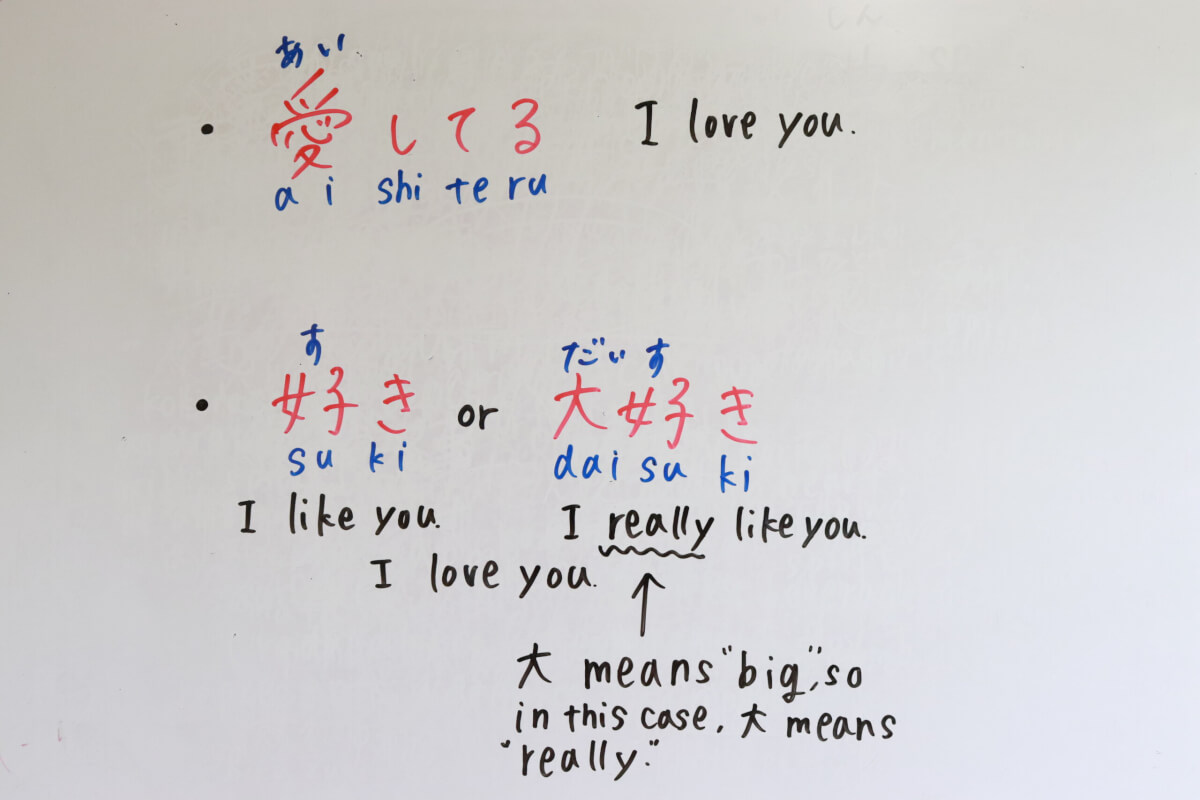 あい
・ 愛してる I love you.
ai shi te ru
す だいす
・ 好き or 大好き
su ki dai su ki
I like you. I really like you.
I love you.
大 means "big," so
in this case, 大 means
"really."